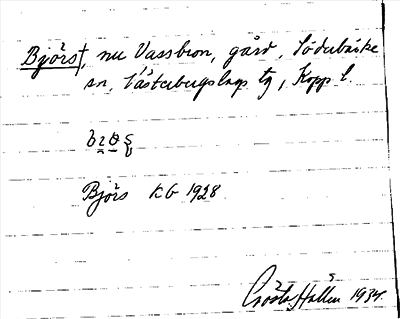 Björs†, nu Vassbron, gård, Söderbärke
sn, Västerbergslags tg, Kopp l.
Björs KG 1928
Gösta Hallin 1934.